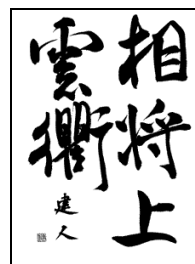 相将上
雲衢
建人